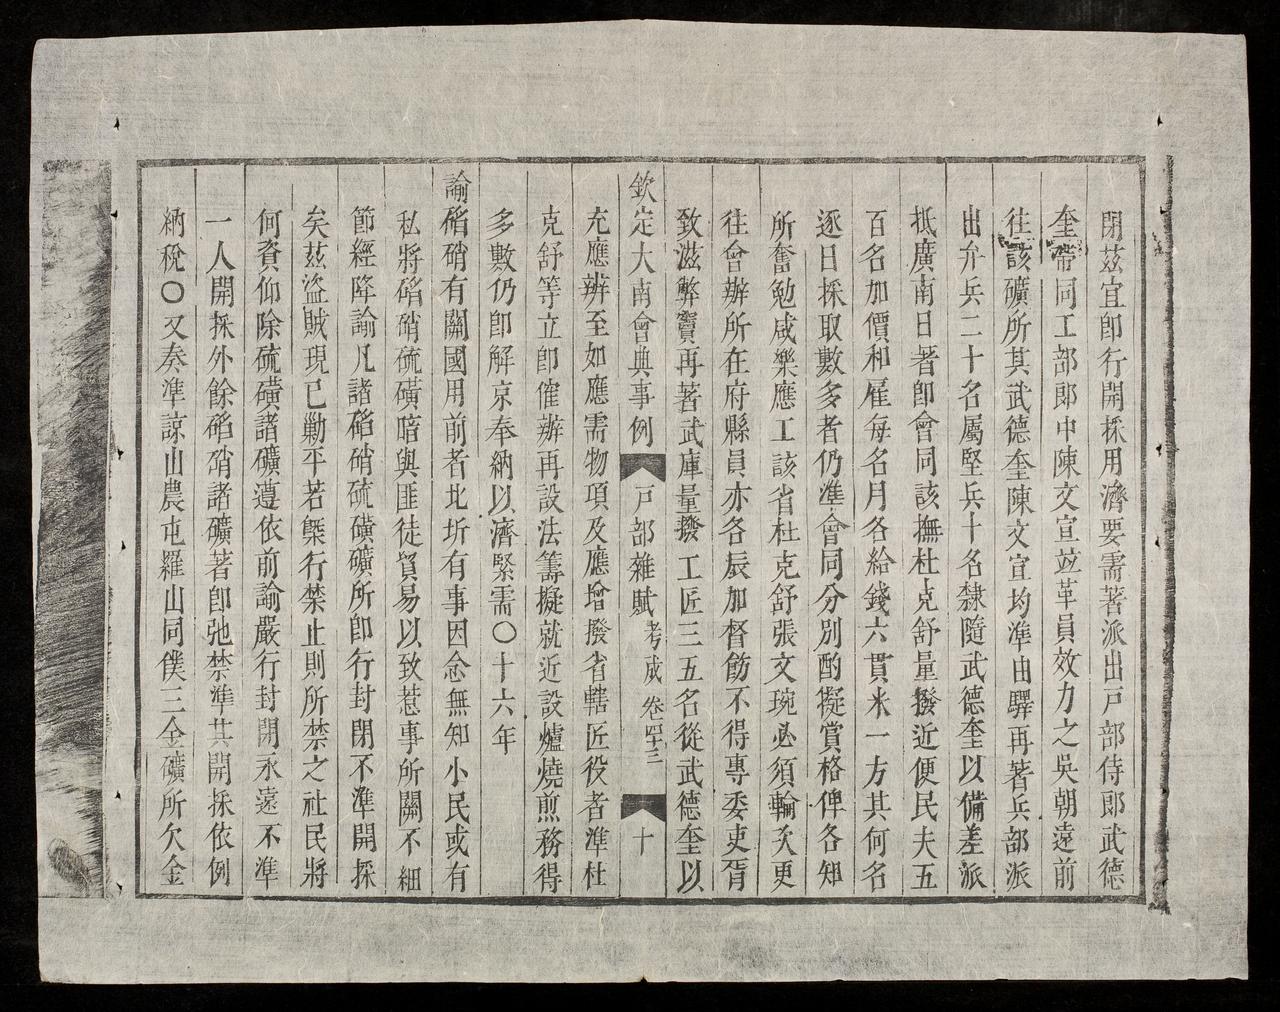 閉茲宜卽行開採用濟要需著派出戸部侍郎武德
奎帶同工部郎中陳文宣竝革員效力之吳朝遠前
往該礦所其武德奎陳文宣均準由驛再著兵部派
出弁兵二十名屬堅兵十名隸隨武德奎以備差派
抵廣南日著卽會同該撫杜克舒量撥近便民夫五
百名加價和雇每名月各給錢六貫米一方其何名
逐日採取數多者仍準會同分別酌擬賞格俾各知
所奮勉咸樂應工該省杜克舒張文琬必須輪次更
往會辦所在府縣員亦各辰加督飭不得專委吏胥
致滋弊竇再著武庫量撥工匠三五名從武德奎以
欽定大南會典事例 戸部雜賦 考成 卷四十三 十
充應辨至如應需物項及應增撥省轄匠役者準杜
克舒等立卽催辦再設法籌擬就近設爐燒煎務得
多數仍卽解京奉納以濟緊需〇十六年
諭硝硝有關國用前者北圻有事因念無知小民或有
私將硝硝硫磺暗與匪徒貿易以致惹事所關不細
節經降諭凡諸硝硝硫磺礦所卽行封閉不準開採
矣茲盜賊現已勦平若槩行禁止則所禁之社民將
何資仰除硫磺諸礦遵依前諭嚴行封閉永遠不準
一人開採外餘硝硝諸礦著卽弛禁準其開採依例
納稅〇又奏準諒山農屯羅山同僕三金礦所欠金